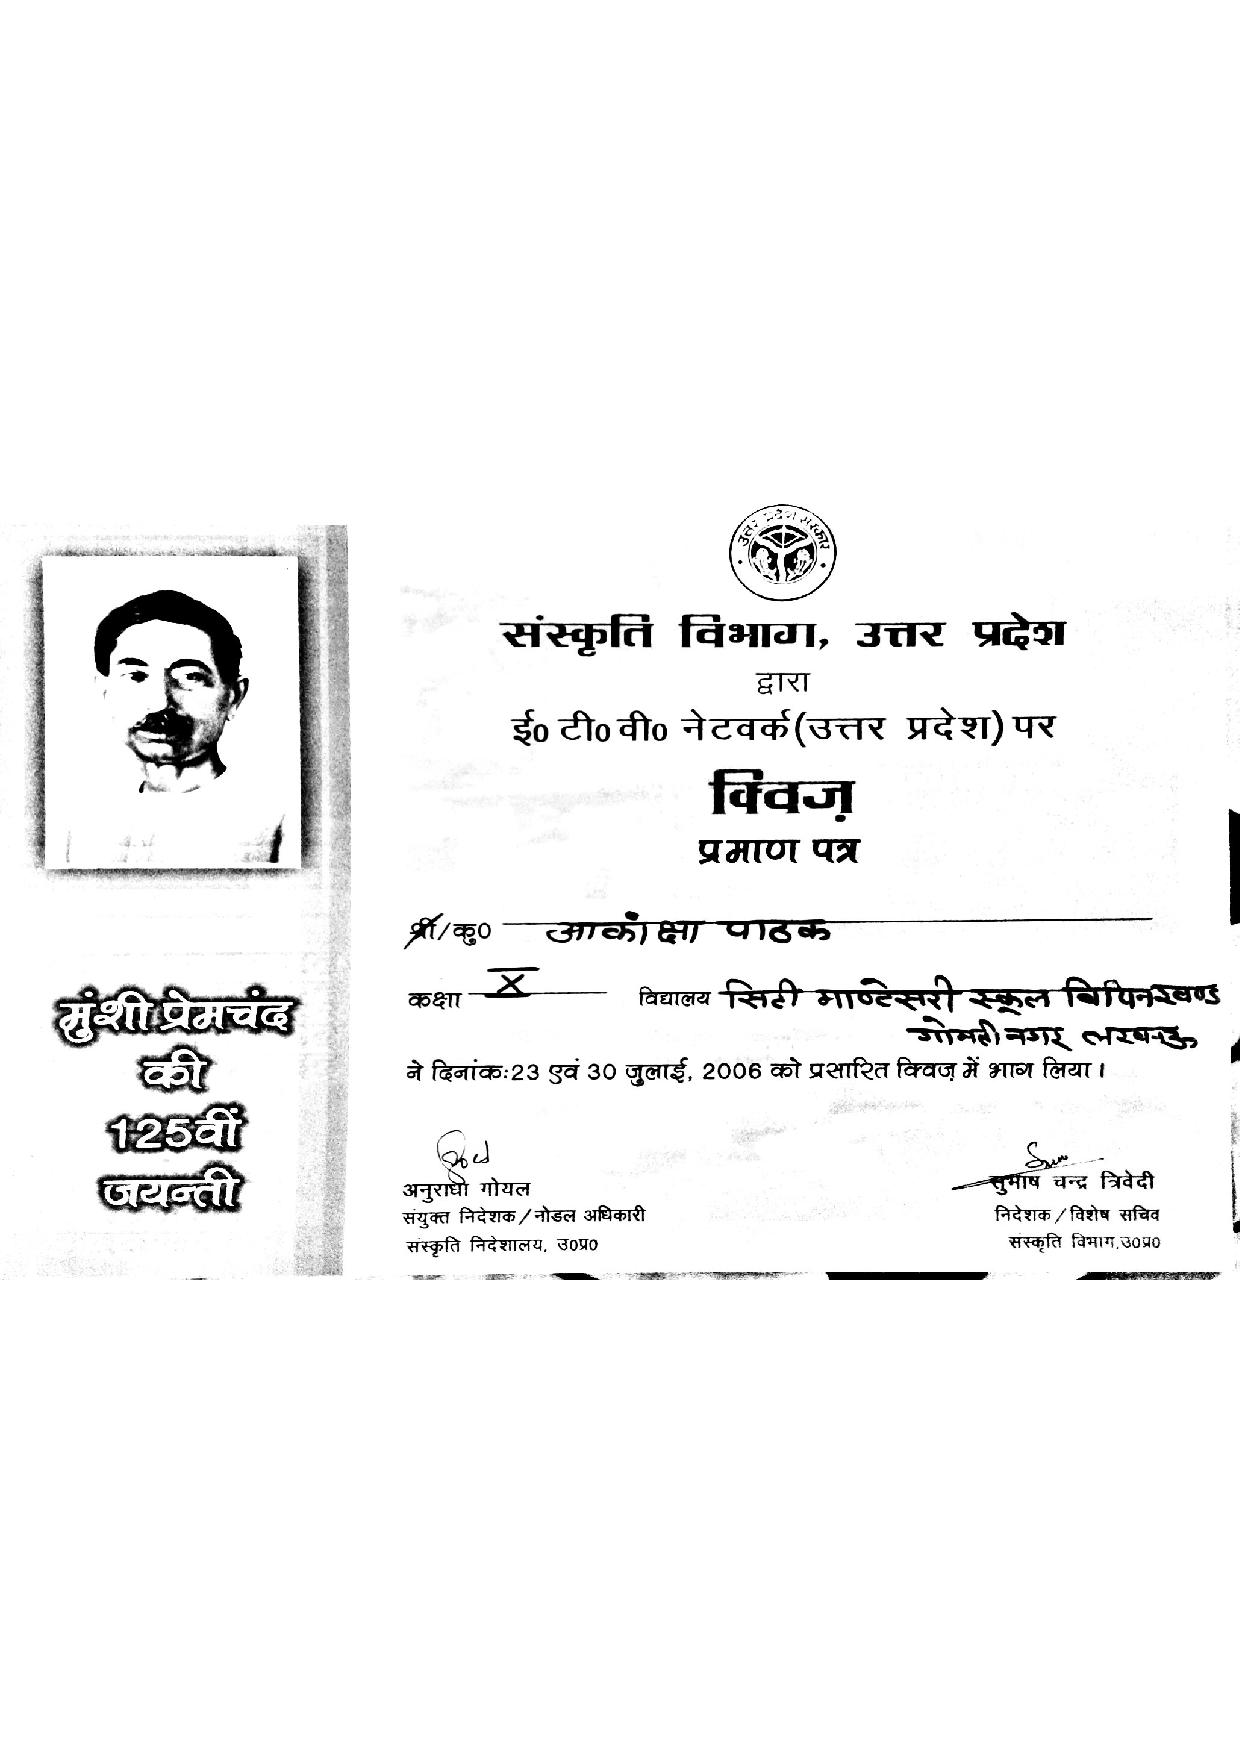 उत्तर प्रदेश सरकार
संस्कृति विभाग, उत्तर प्रदेश
द्वारा
ई० टी० वी० नेटवर्क (उत्तर प्रदेश) पर
क्विज़
प्रमाण पत्र
श्री/कु० आकांक्षा पाठक
कक्षा X विद्यालय सिटी माण्टेसरी स्कूल विपिनखण्ड
गोमतीनगर लखनऊ
ने दिनांकः23 एवं 30 जुलाई, 2006 को प्रसारित क्विज़ में भाग लिया।
अनुराधा गोयल
संयुक्त निदेशक/नोडल अधिकारी
संस्कृति निदेशालय, उ०प्र०
सुभाष चन्द्र त्रिवेदी
निदेशक/विशेष सचिव
संस्कृति विभाग,उ०प्र०
मुंशी प्रेमचंद
की
125वीं
जयन्ती